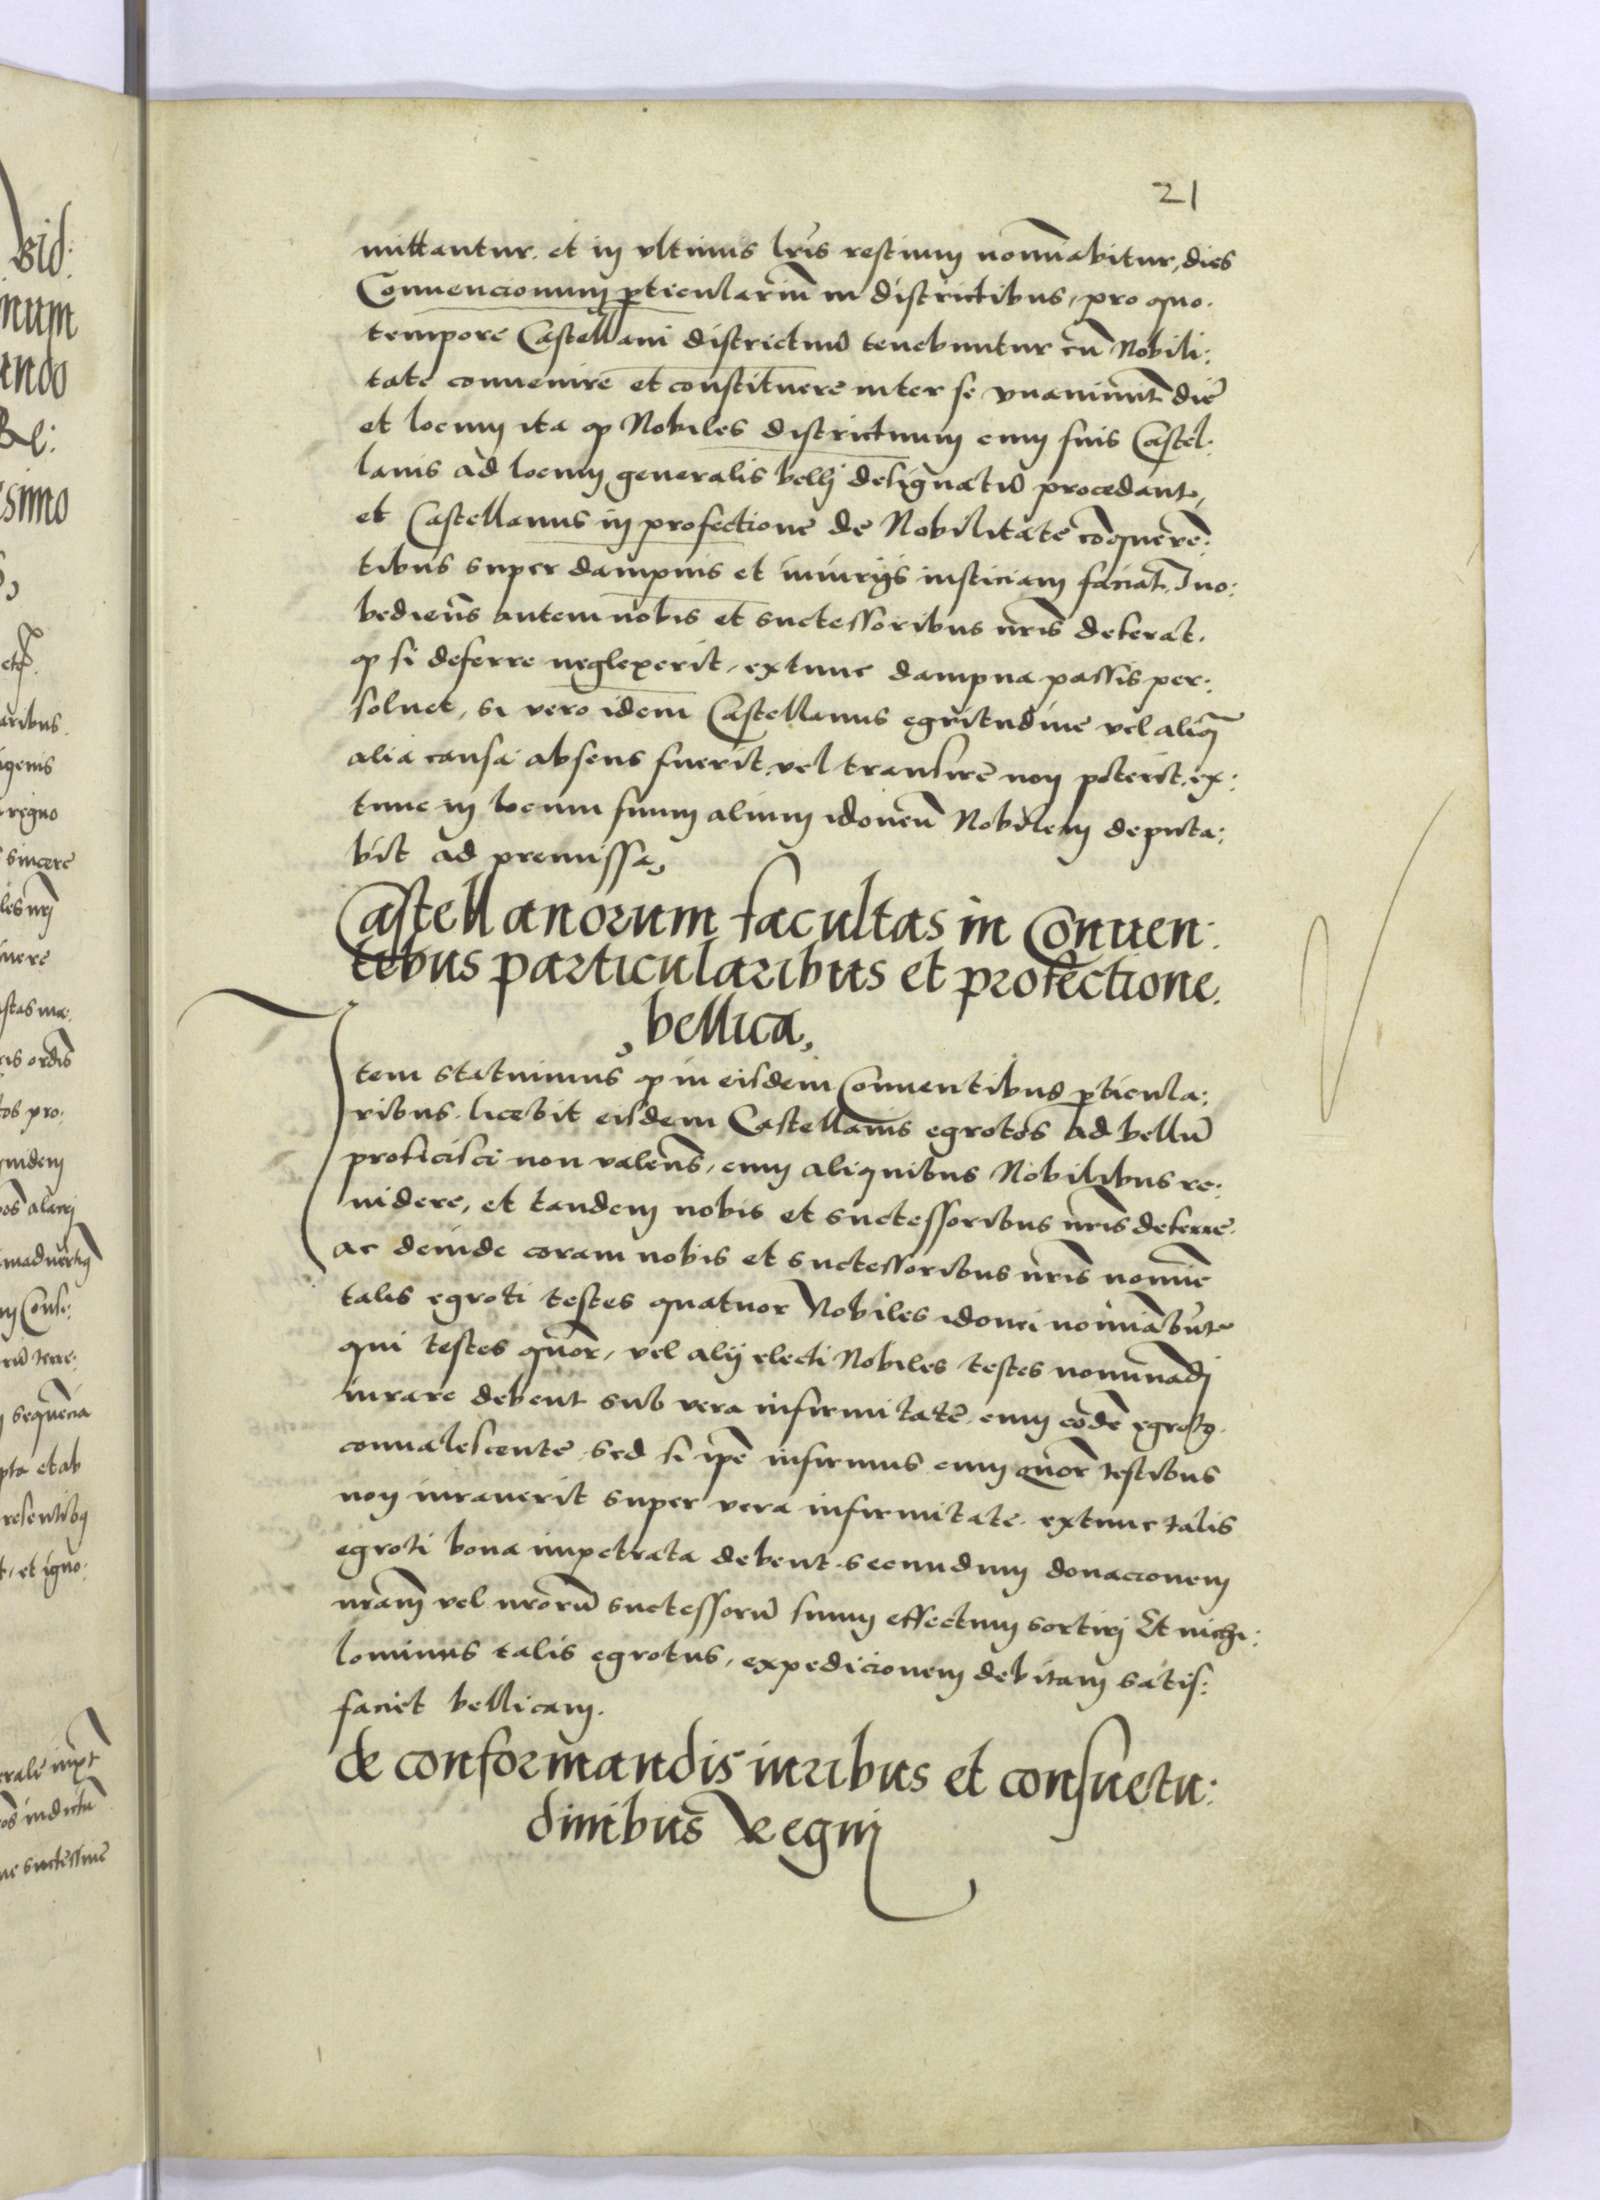 21
mittantur. et in vltimis lr̄is restium nomīabitur, dies
Conuencionum ꝑticulariū in districtibus, pro quo.
tempore Castellani districtuū tenebuntur cū Nobili:
tate conuenire et constituere inter se vnanimit̄ diē
et locum ita ꝙ Nobiles districtuum cum suis Castel:
lanis ad locum generalis belli designatū procedant,
et Castellanus in profectione de Nobilitate cōquerē:
tibus super dampnis et iniurijs iusticiam faciat. Ino:
bediens autem nobis et successoribus nr̄is deferat.
ꝙ si deferre neglexerit, extunc dampna passis per:
soluet, si vero idem Castellanus egritudine vel aliq̄
alia causa absens fuerit, vel transire non poterit, ex:
tunc in locum suum alium idoneū Nobilem deputa:
bit ad premissa,
Castellanorum facultas in Conuen:
tibus particularibus et profectione.
, bellica,
Item statuimus ꝙ in eisdem Conuentibus ꝑticula:
ribus. licebit eisdem Castellanis egrotos ad bellū
proficisci non valen̄s, cum aliquibus Nobilibus re:
uidere, et tandem nobis et successoribus nr̄is deferre.
ac deinde coram nobis et successoribus nr̄is nomīe
talis egroti testes quatuor Nobiles idonei nomīabūt
qui testes quor̄, vel alij electi Nobiles testes nominādj
iurare debent sub vera infirmitate. cum eodē egroto.
conualescente, sed si ip̄e infirmus cum quor̄ testibus
non iurauerit super vera infirmitate. extunc talis
egroti bona impetrata debent. secundum donacionem
nr̄am vel nr̄orū successorū suum effectum sortirj Et nichi:
lominus talis egrotus, expedicionem debitam satis:
faciet bellicam.
de conformandis iuribus et consuetu:
dinibus Regni